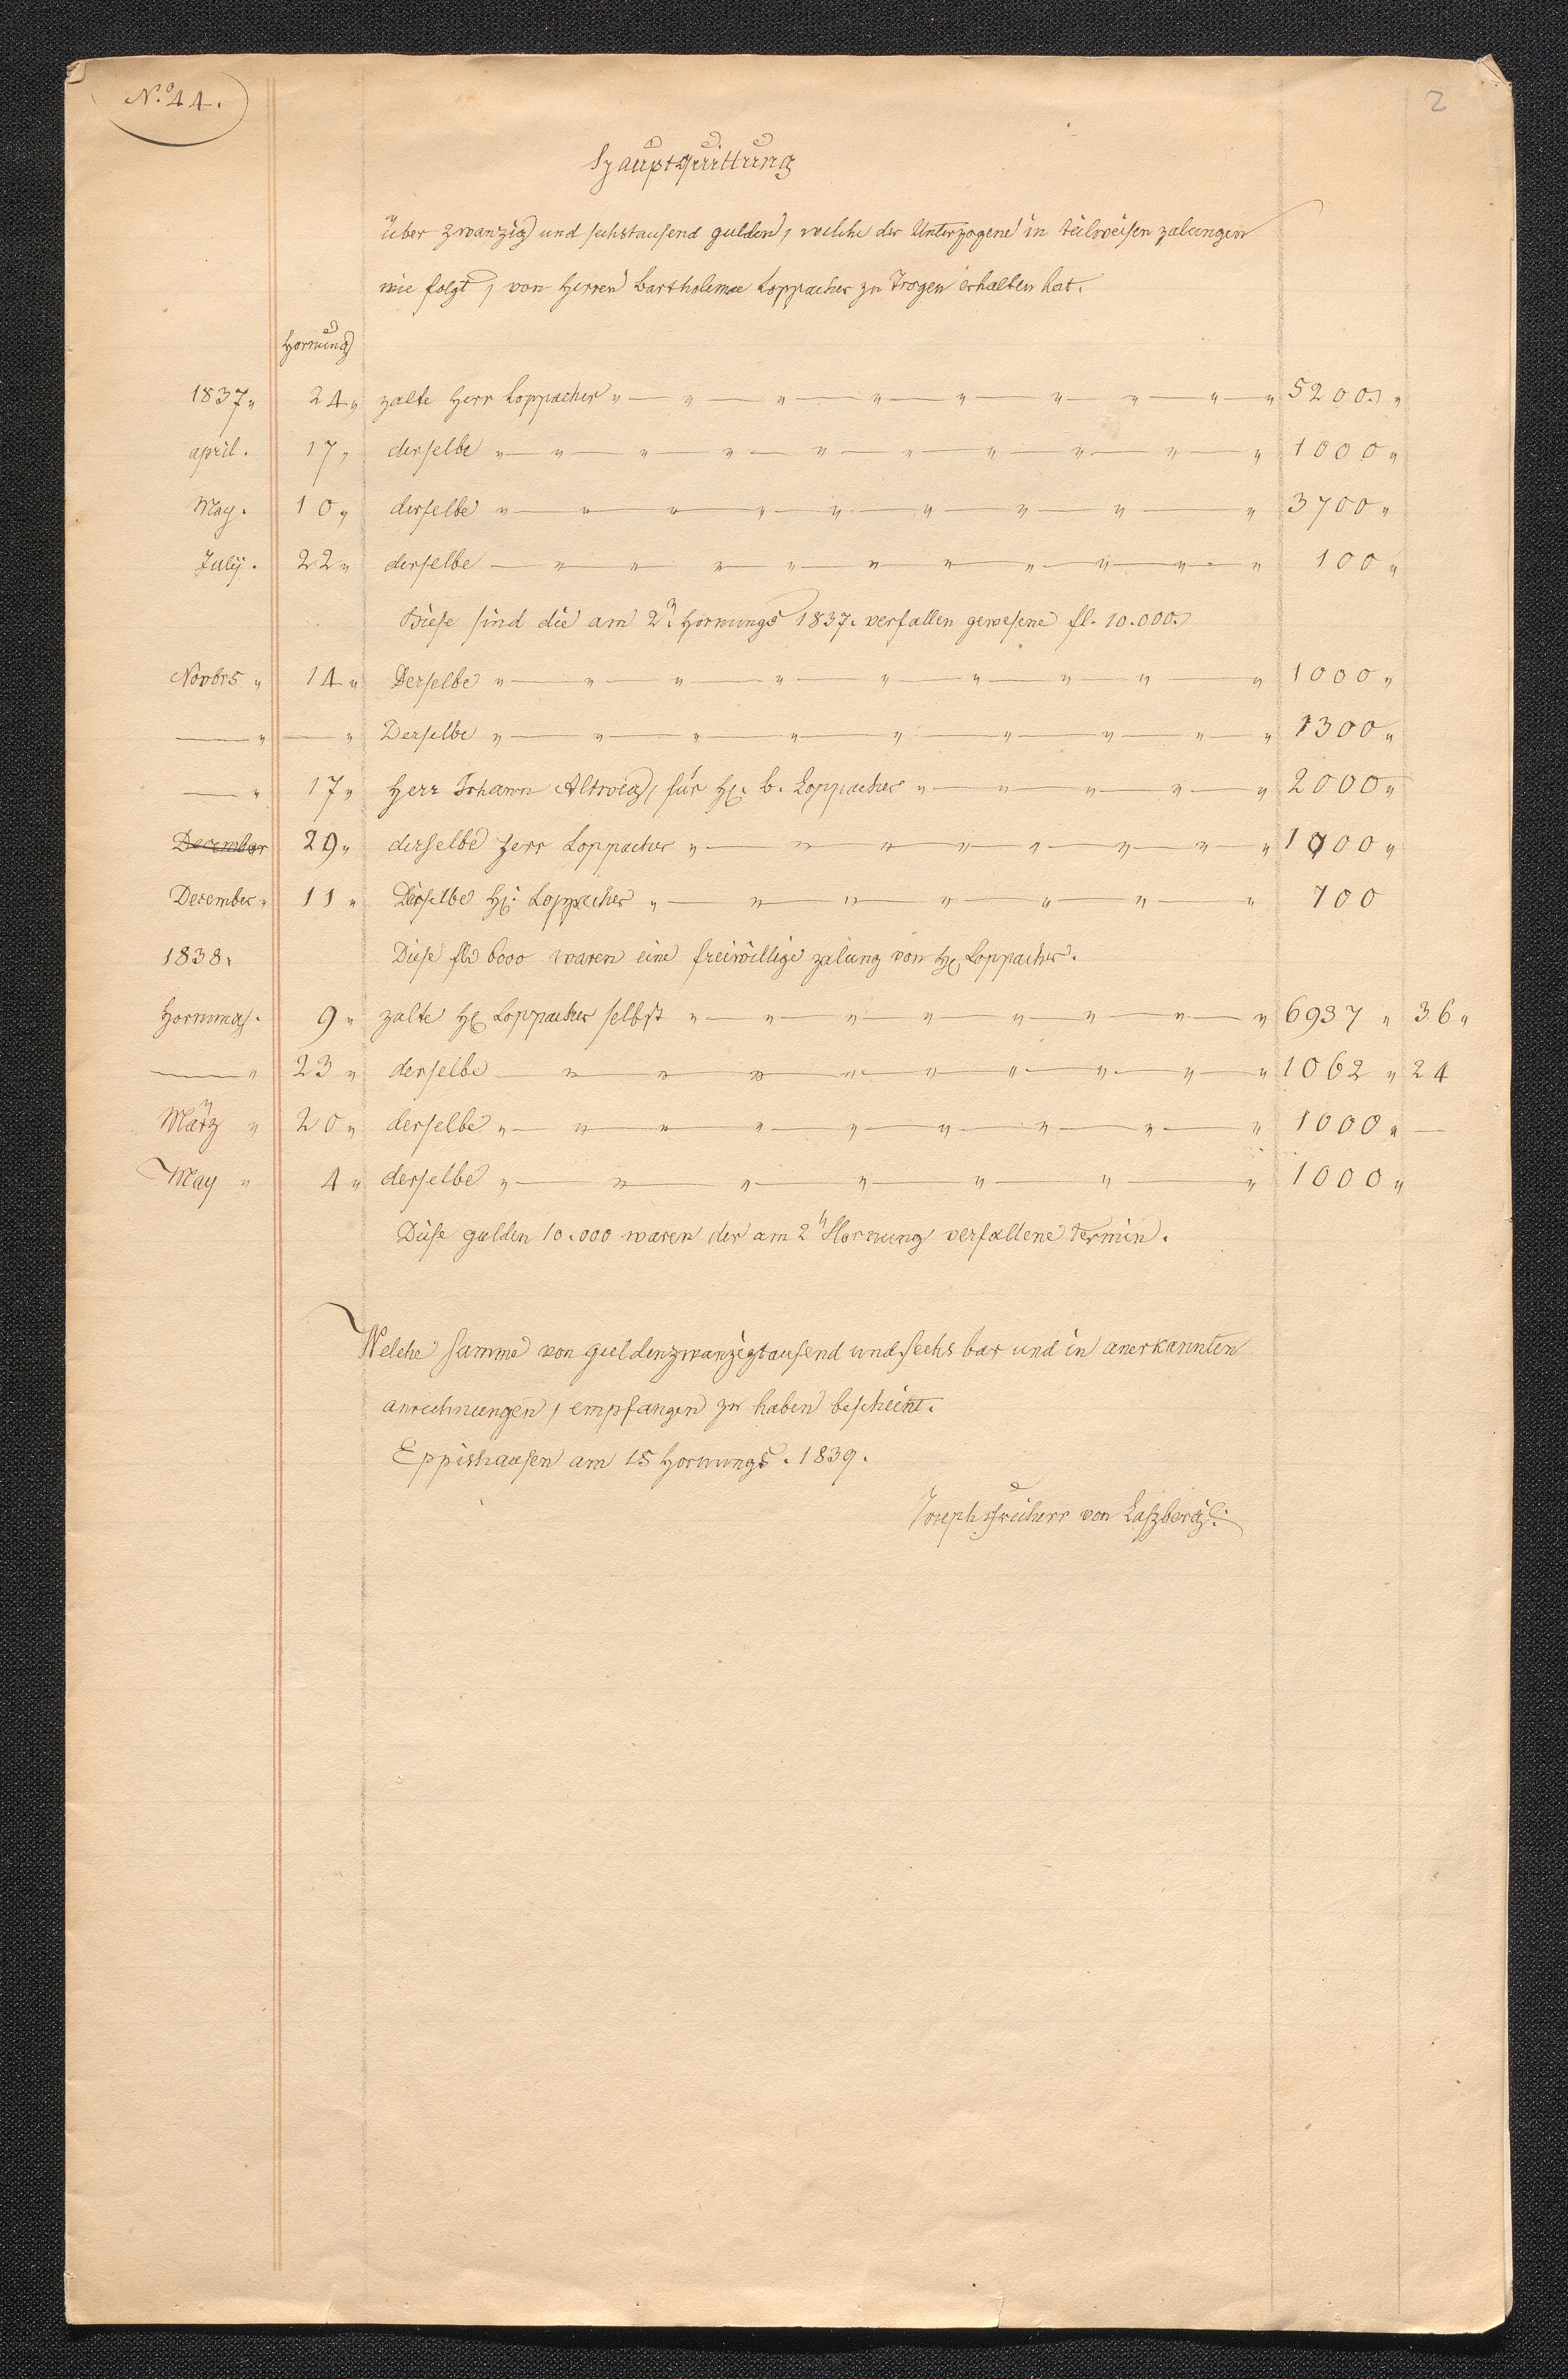 No. 44.
2
Hauptquittung
über zwanzig und sechstausend gulden, welche der Unterzogene in teilweisen zalungen
wie folgt, von Herren Bartholemae Loppacher zu Trogen erhalten hat.
Hornung
1837 " 24 " zalte Herr Loppacher " — " — " — " — " — " — " — " — " 5200. "
april. 17 " derselbe " — " — " — " — " — " — " — " — " — " 1000 "
May. 10 " derselbe " — " — " — " — " — " — " — " — " 3700 "
July. 22 " derselbe — " — " — " — " — " — " — " — " — " — " 100 "
Diese sind die am 2n Hornungs 1837. verfallen gewesene fl. 10.000.
Novbrs " 14 " Derselbe " — " — " — " — " — " — " — " — " 1000 "
— " — " Derselbe " — " — " — " — " — " — " — " — " 1300 "
— " 17 " Herr Johann Altweg, für H. b. Loppacher " — " — " — " — " 2000 "
December 29 " derselbe Herr Loppacher " — " — " — " — " — " — " — " 1000 "
December " 11 " Derselbe H. Loppacher " — " — " — " — " — " — " 700
1838. Diese fl. 6000 waren eine freiwillige zalung von H. Loppacher.
Hornung. 9 " zalte H. Loppacher selbst " — " — " — " — " — " — " — " 6937 " 36 "
— " 23 " derselbe — " — " — " — " — " — " — " — " — " 1062 " 24
März " 20 " derselbe " — " — " — " — " — " — " — " — " 1000 " —
May " 4 " derselbe " — " — " — " — " — " — " 1000 "
Diese gulden 10.000 waren der am 2n Hornung verfallene termin.
Welche summe von guldenzwanzigtausend undsechs bar und in anerkannten
anrechnungen, empfangen zu haben bescheint.
Eppishausen am 15 Hornungs. 1839.
Joseph Freiherr von Laßberg.